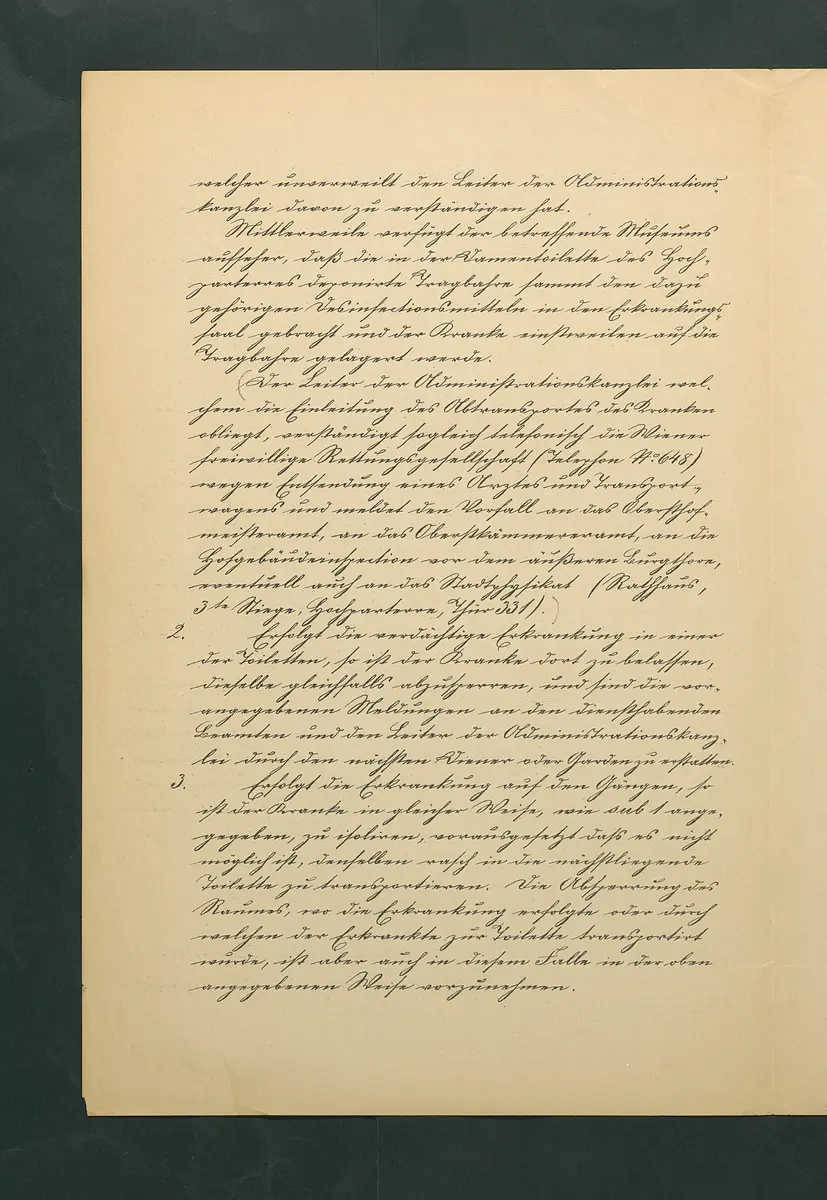 welcher unverweilt den Leiter der Administrations-
kanzlei davon zu verständigen hat.
Mittlerweile verfügt der betreffende Museums
aufseher, daß die in der Damentoilette des Hoch-
parterres deponirte Tragbahre sammt den dazu
gehörigen Desinfectionsmitteln in den Erkrankungs-
saal gebracht und der Kranke einstweilen auf die
Tragbahre gelagert werde.
(Der Leiter der Administrationskanzlei wel-
chem die Einleitung des Abtransportes des Kranken
obliegt, verständigt sogleich telefonisch die Wiener
freiwillige Rettungsgesellschaft (Telephon No 648)
wegen Entsendung eines Arztes und Transport-
wagens und meldet den Vorfall an das Obersthof-
meisteramt, an das Oberstkämmereramt, an die
Hofgebäudeinspection vor dem äußeren Burgthore,
eventuell auch an das Stadtphysikat (Rathhaus,
3te Stiege, Hochparterre, Thür 331).)
2. Erfolgt die verdächtige Erkrankung in einer
der Toiletten, so ist der Kranke dort zu belassen,
dieselbe gleichfalls abzusperren, und sind die vor-
angegebenen Meldungen an den diensthabenden
Beamten und den Leiter der Administrationskanz-
lei durch den nächsten Diener oder Garden zu erstatten.
3. Erfolgt die Erkrankung auf den Gängen, so
ist der Kranke in gleicher Weise, wie sub 1 ange-
gegeben, zu isoliren, vorausgesetzt dass es nicht
möglich ist, denselben rasch in die nächstliegende
Toilette zu transportieren. Die Absperrung des
Raumes, wo die Erkrankung erfolgte oder durch
welchen der Erkrankte zur Toilette transportirt
wurde, ist aber auch in diesem Falle in der oben
angegebenen Weise vorzunehmen.